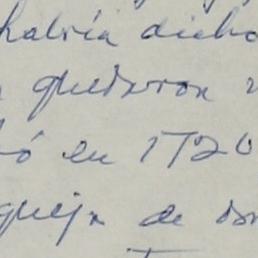 habría dicho
quedaron
ó en 1720
queja de